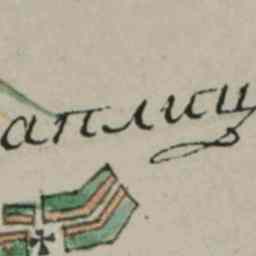 аплиц